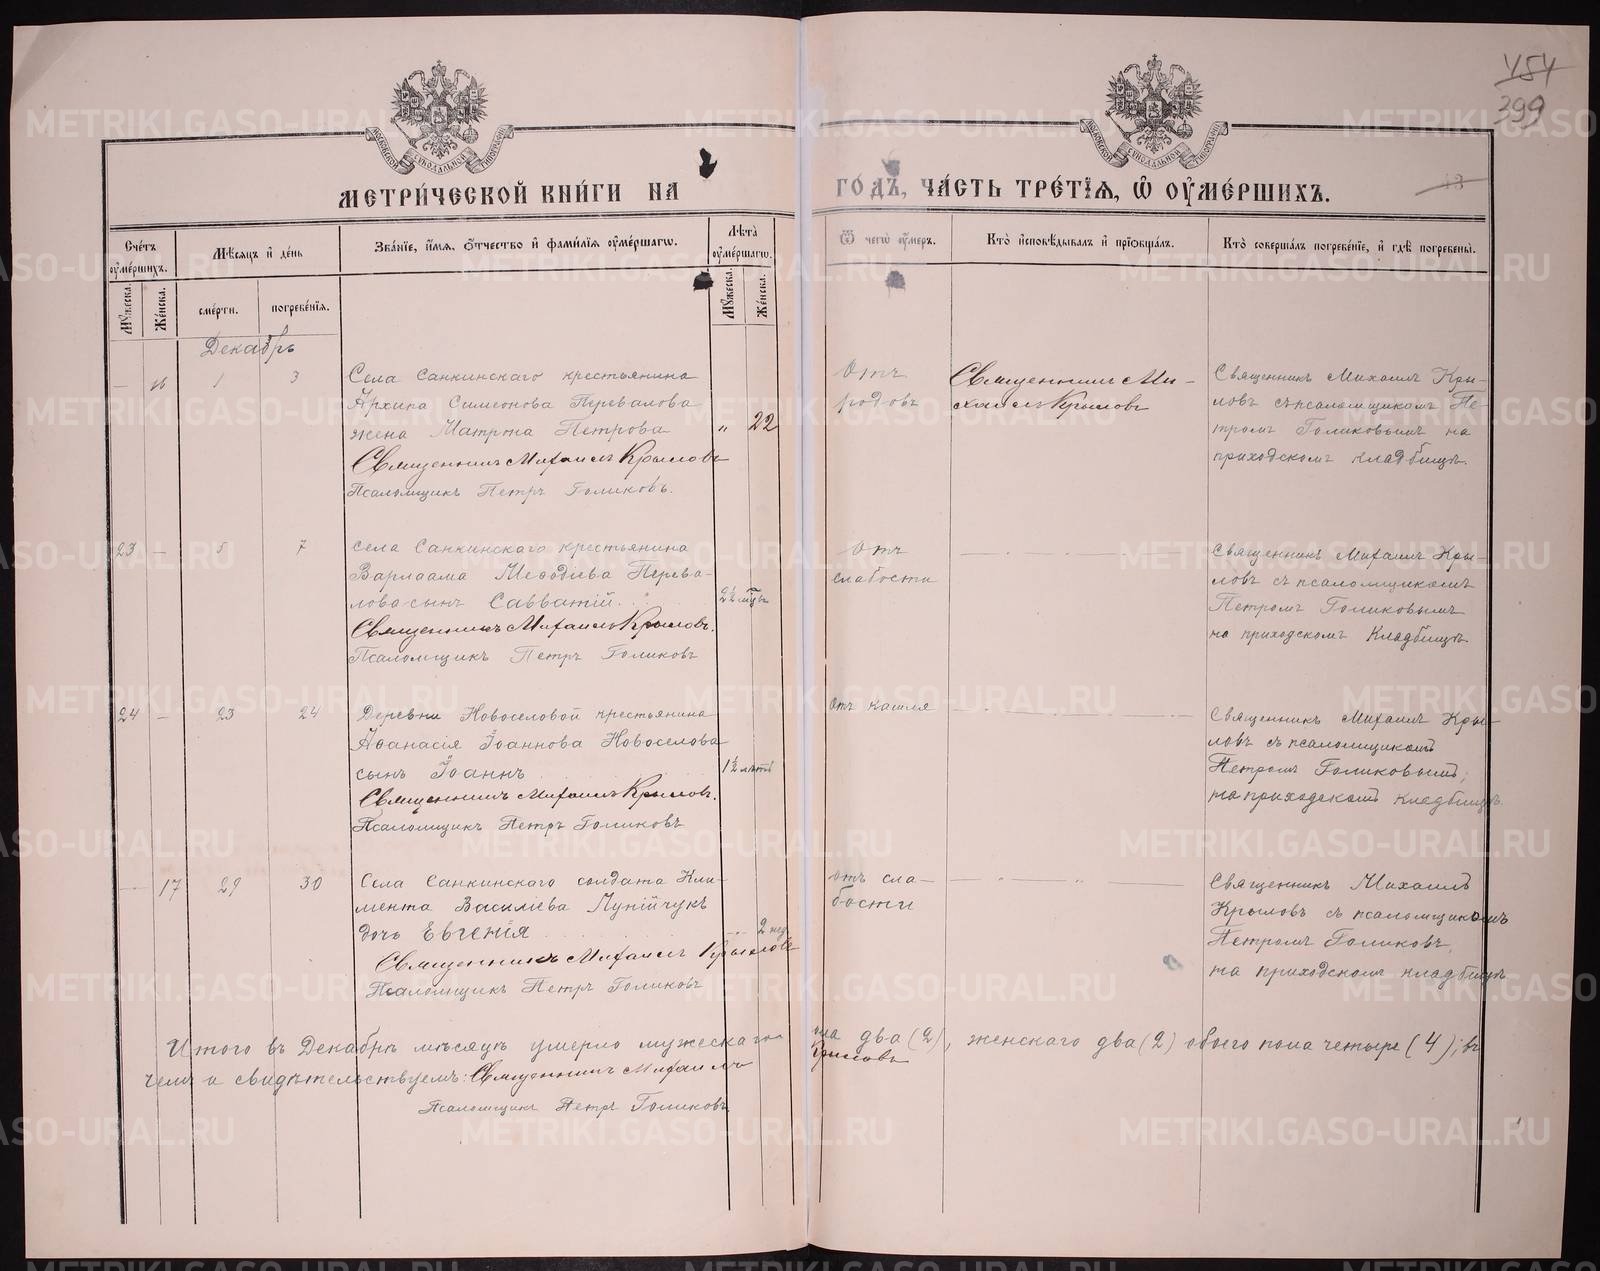 454
399
МОСКОВСКОЙ СѴНОДАЛЬНОЙ ТИПОГРАФІИ
МОСКОВСКОЙ СѴНОДАЛЬНОЙ ТИПОГРАФІИ
МЕТРИ́ЧЕСКОЙ КНИ́ГИ НА ГО́ДЪ, ЧА́СТЬ ТРЕ́ТІѦ, Ѡ ОУМЕ́РШИХЪ.
13
Сче́тъ оумершихъ.
Мѣ́сяцъ и҆ де́нь
Зва́нїе, и҆мѧ, ѻтчество и҆ фами́лїѧ оуме́ршагѡ.
Лѣ́та оуме́ршагѡ.
Ѿ чегѡ̀ оу́меръ.
Кто̀ и҆сповѣ́дывалъ и҆ прїѡбща́лъ.
Кто̀ соверша́лъ погребе́нїе, и҆ гдѣ̀ погребены̀.
Мꙋжеска.
Же́нска.
сме́рти.
погребе́нїѧ.
Мꙋ́жеска.
Же́нска.
Декабрь
— 16 1 3
Села Санкинскаго крестьянина
Архипа Симеонова Перевалова
жена Матрона Петрова
Священникъ Михаилъ Крыловъ
Псаломщикъ Петръ Голиковъ.
„ 22
Отъ
родовъ
Священникъ Ми-
хаилъ Крыловъ
Священникъ Михаилъ Кры-
ловъ съ псаломщикомъ Пе-
тромъ Голиковымъ на
приходскомъ кладбищѣ.
23 — 5 7
Села Санкинскаго крестьянина
Варлаама Меѳодіева Перева-
лова сынъ Савватій.
Священникъ Михаилъ Крыловъ.
Псаломщикъ Петръ Голиковъ
2½ мѣс
Отъ
слабости
Священникъ Михаилъ Кры-
ловъ съ псаломщикомъ
Петромъ Голиковымъ
на приходскомъ Кладбищѣ.
24 — 23 24
Деревни Новоселовой крестьянина
Аѳанасія Іоаннова Новоселова
сынъ Іоаннъ
Священникъ Михаилъ Крыловъ.
Псаломщикъ Петръ Голиковъ
1½ лѣтъ
Отъ кашля
Священникъ Михаилъ Кры-
ловъ съ псаломщикомъ
Петромъ Голиковымъ,
на приходскомъ кладбищѣ.
— 17 29 30
Села Санкинскаго солдата Кли-
мента Василіева Лунійчукъ
дочь Евгенія
Священникъ Михаилъ Крыловъ
Псаломщикъ Петръ Голиковъ
2 нед.
отъ сла-
бости
Священникъ Михаилъ
Крыловъ съ псаломщикомъ
Петромъ Голиковъ,
на приходскомъ кладбищѣ
Итого въ Декабрѣ мѣсяцѣ умерло мужескаго пола два (2), женскаго два (2) обоего пола четыре (4); въ
чемъ и свидѣтельствуемъ: Священникъ Михаилъ Крыловъ
Псаломщикъ Петръ Голиковъ
METRIKI.GASO-URAL.RU